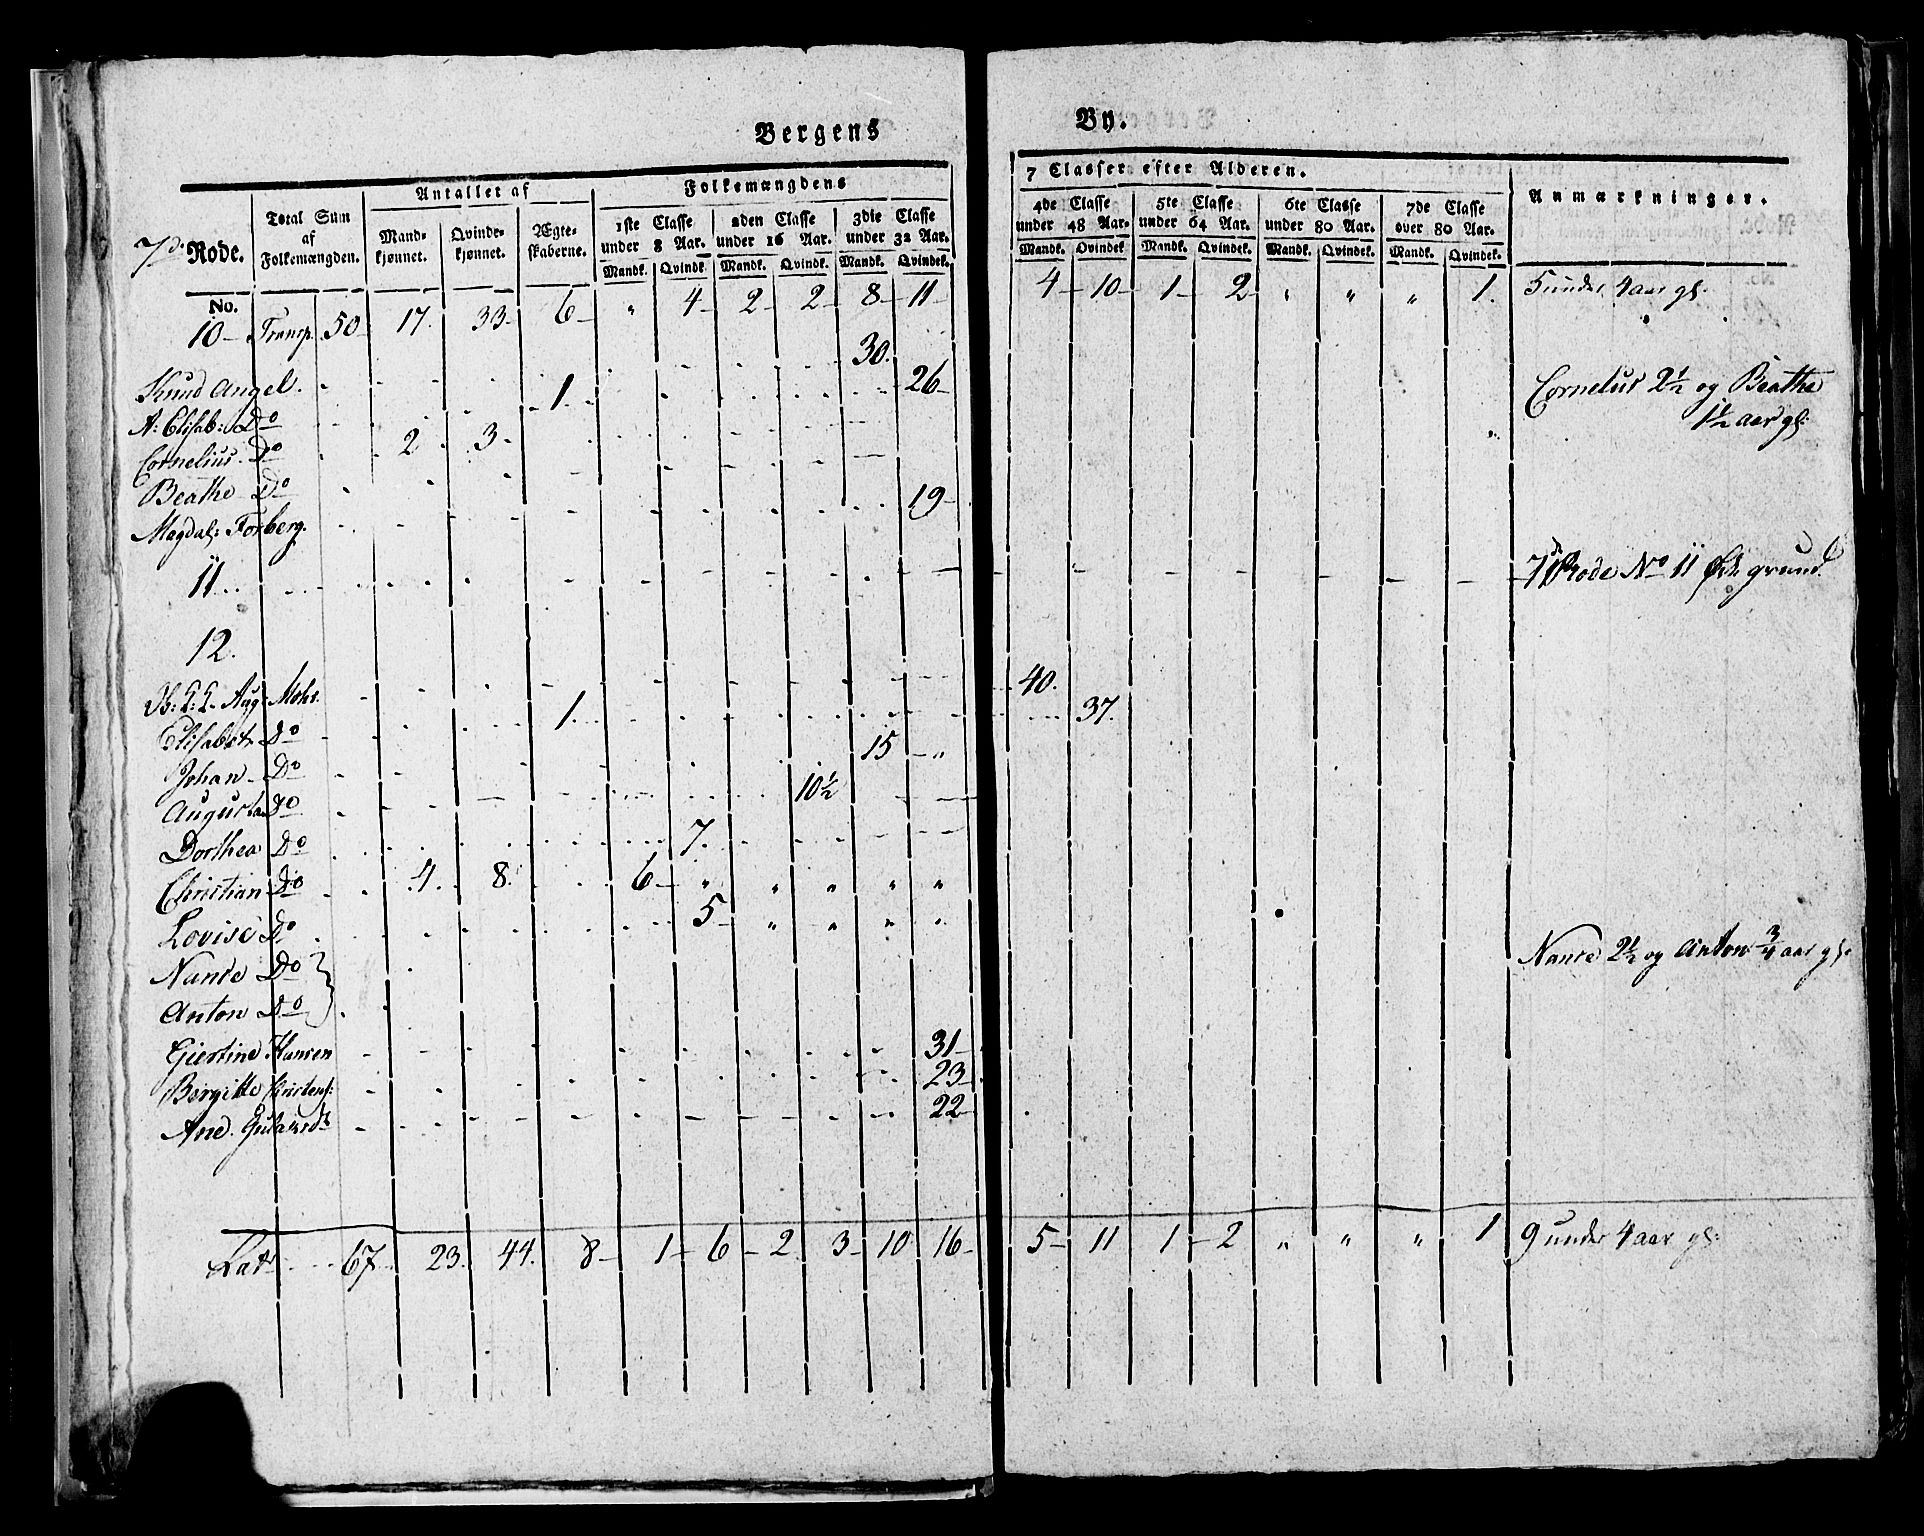 Bergens By.
7de Rode. Total Sum af Folkemængden. Antallet af Mandkjønnet. Qvindekjønnet. Ægteskaberne. Folkemængdens 7 Classer efter Alderen. Anmærkninger.
1ste Classe under 8 Aar. 2den Classe under 16 Aar. 3die Classe under 32 Aar. 4de Classe under 48 Aar. 5te Classe under 64 Aar. 6te Classe under 80 Aar. 7de Classe over 80 Aar.
Mandk. Qvindk. Mandk. Qvindk. Mandk. Qvindek. Mandk. Qvindek. Mandk. Qvindek. Mandk. Qvindek. Mandk. Qvindek.
No.
10 Transp. 50 17. 33 6 " 4 2 2 8 11 4 10 1 2 " " " 1. 5 under 4 aar gl.
Knud Angel. 30.
A: Elisab: Do 1 26 Cornelius 2½ og Beathe
Cornelius Do 2 3 1½ aar gl:
Beathe Do
Magdal: Forberg. 19
11 7de Rode No 11 Øde grund.
12.
Aug: Mohr. 40.
Elisabet Do 1 37.
Johan Do 15 "
Augusta Do 10½
Dorthea Do 7.
Christian Do 4. 8. 6 " " " " "
Lovise Do 5 " " " "
Nanse Do Nanse 2½ og Anton ¾ aar gl:
Anton Do
Giertine Hansen 31
Bergitte Christens: 23
Ane. 22
Latr 67 23. 44. 8 1 6 2. 3 10 16 5 11 1 2 " " " 1 9 under 4 aar gl: